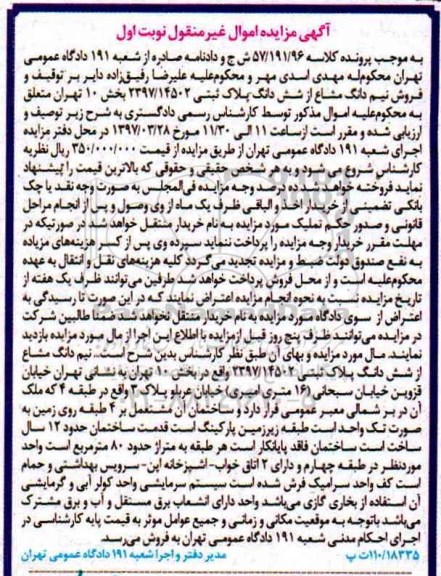 آگهی مزایده اموال غیر منقول نوبت اول
به موجب پرونده کلاسه ۵۷/۱۹۱/۹۶ ش ج و دادنامه صادره از شعبه ۱۹۱ دادگاه عمومی
تهران محکوم‌له مهدی اسدی مهر و محکوم‌علیه علیرضا رفیق‌زاده دایر بر توقیف و
فروش نیم دانگ مشاع از شش دانگ پلاک ثبتی ۲۳۹۷/۱۴۵۰۲ بخش ۱۰ تهران متعلق
به محکوم‌علیه اموال مذکور توسط کارشناس رسمی دادگستری به شرح زیر توصیف و
ارزیابی شده و مقرر است از ساعت ۱۱ الی ۱۱/۳۰ مورخ ۱۳۹۷/۰۳/۲۸ در محل دفتر مزایده
اجرای شعبه ۱۹۱ دادگاه عمومی تهران از طریق مزایده از قیمت ۳۵۰/۰۰۰/۰۰۰ ریال نظریه
کارشناس شروع می‌شود و به هر شخص حقیقی و حقوقی که بالاترین قیمت را پیشنهاد
نماید فروخته خواهد شد ده درصد وجه مزایده فی‌المجلس به صورت وجه نقد یا چک
بانکی تضمینی از خریدار اخذ و الباقی ظرف یک ماه از وی وصول و پس از انجام مراحل
قانونی و صدور حکم تملیک مورد مزایده به نام خریدار منتقل خواهد شد در صورتیکه در
مهلت مقرر خریدار وجه مزایده را پرداخت ننماید سپرده وی پس از کسر هزینه‌های مزایده
به نفع صندوق دولت ضبط و مزایده تجدید می‌گردد کلیه هزینه‌های نقل و انتقال به عهده
محکوم‌علیه است و از محل فروش پرداخت خواهد شد طرفین می‌توانند ظرف یک هفته از
تاریخ مزایده نسبت به نحوه انجام مزایده اعتراض نمایند که در این صورت تا رسیدگی به
اعتراض از سوی دادگاه مورد مزایده به نام خریدار منتقل نخواهد شد ضمنا طالبین شرکت
در مزایده می‌توانند ظرف پنج روز قبل از مزایده با اطلاع این اجرا از مال مورد مزایده بازدید
نمایند. مال مورد مزایده و بهای آن طبق نظر کارشناس بدین شرح است.. نیم دانگ مشاع
از شش دانگ پلاک ثبتی ۲۳۹۷/۱۴۵۰۲ واقع در بخش ۱۰ تهران به نشانی تهران خیابان
قزوین خیابان سبحانی (۱۶ متری امیری) خیابان عزیزپور پلاک ۳ واقع در طبقه ۴ که ملک
آن در بر شمالی معبر عمومی قرار دارد و ساختمان آن مشتمل بر ۴ طبقه روی زمین به
صورت تک واحد است طبقه زیرزمین پارکینگ است قدمت ساختمان حدود ۱۲ سال
ساخت است ساختمان فاقد پایانکار است هر طبقه به متراژ حدود ۸۰ مترمربع است واحد
موردنظر در طبقه چهارم و دارای ۲ اتاق خواب- آشپزخانه اپن- سرویس بهداشتی و حمام
است کف واحد سرامیک فرش شده است سیستم سرمایشی واحد کولر آبی و گرمایشی
آن استفاده از بخاری گازی می‌باشد واحد دارای انشعاب برق مستقل و آب و برق مشترک
می‌باشد باتوجه به موقعیت مکانی و زمانی و جمیع عوامل موثر به قیمت پایه کارشناسی در
اجرای احکام مدنی شعبه ۱۹۱ دادگاه عمومی تهران به فروش می‌رسد.
۱۱۰/۱۸۳۳۵ت پ مدیر دفتر و اجرا شعبه ۱۹۱ دادگاه عمومی تهران